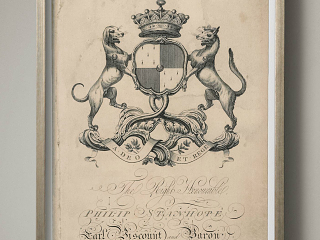 A DEO ET REGE
The Right Honourable
PHILIP STANHOPE
Earl Viscount and Baron